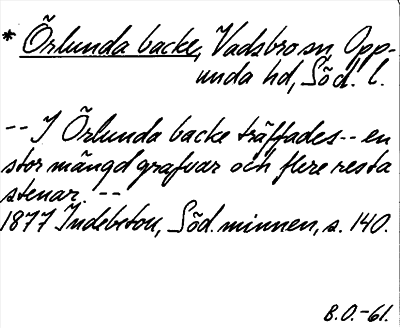 * Õrlunda backe, Vadsbro sn, Opp-
unda hd, Söd. l.
-- I Õrlunda backe träffades -- en
stor mängd grafvar och flere resta
stenar. --
1877 Indebetou, Söd. minnen, s. 140.
B.O.-61.